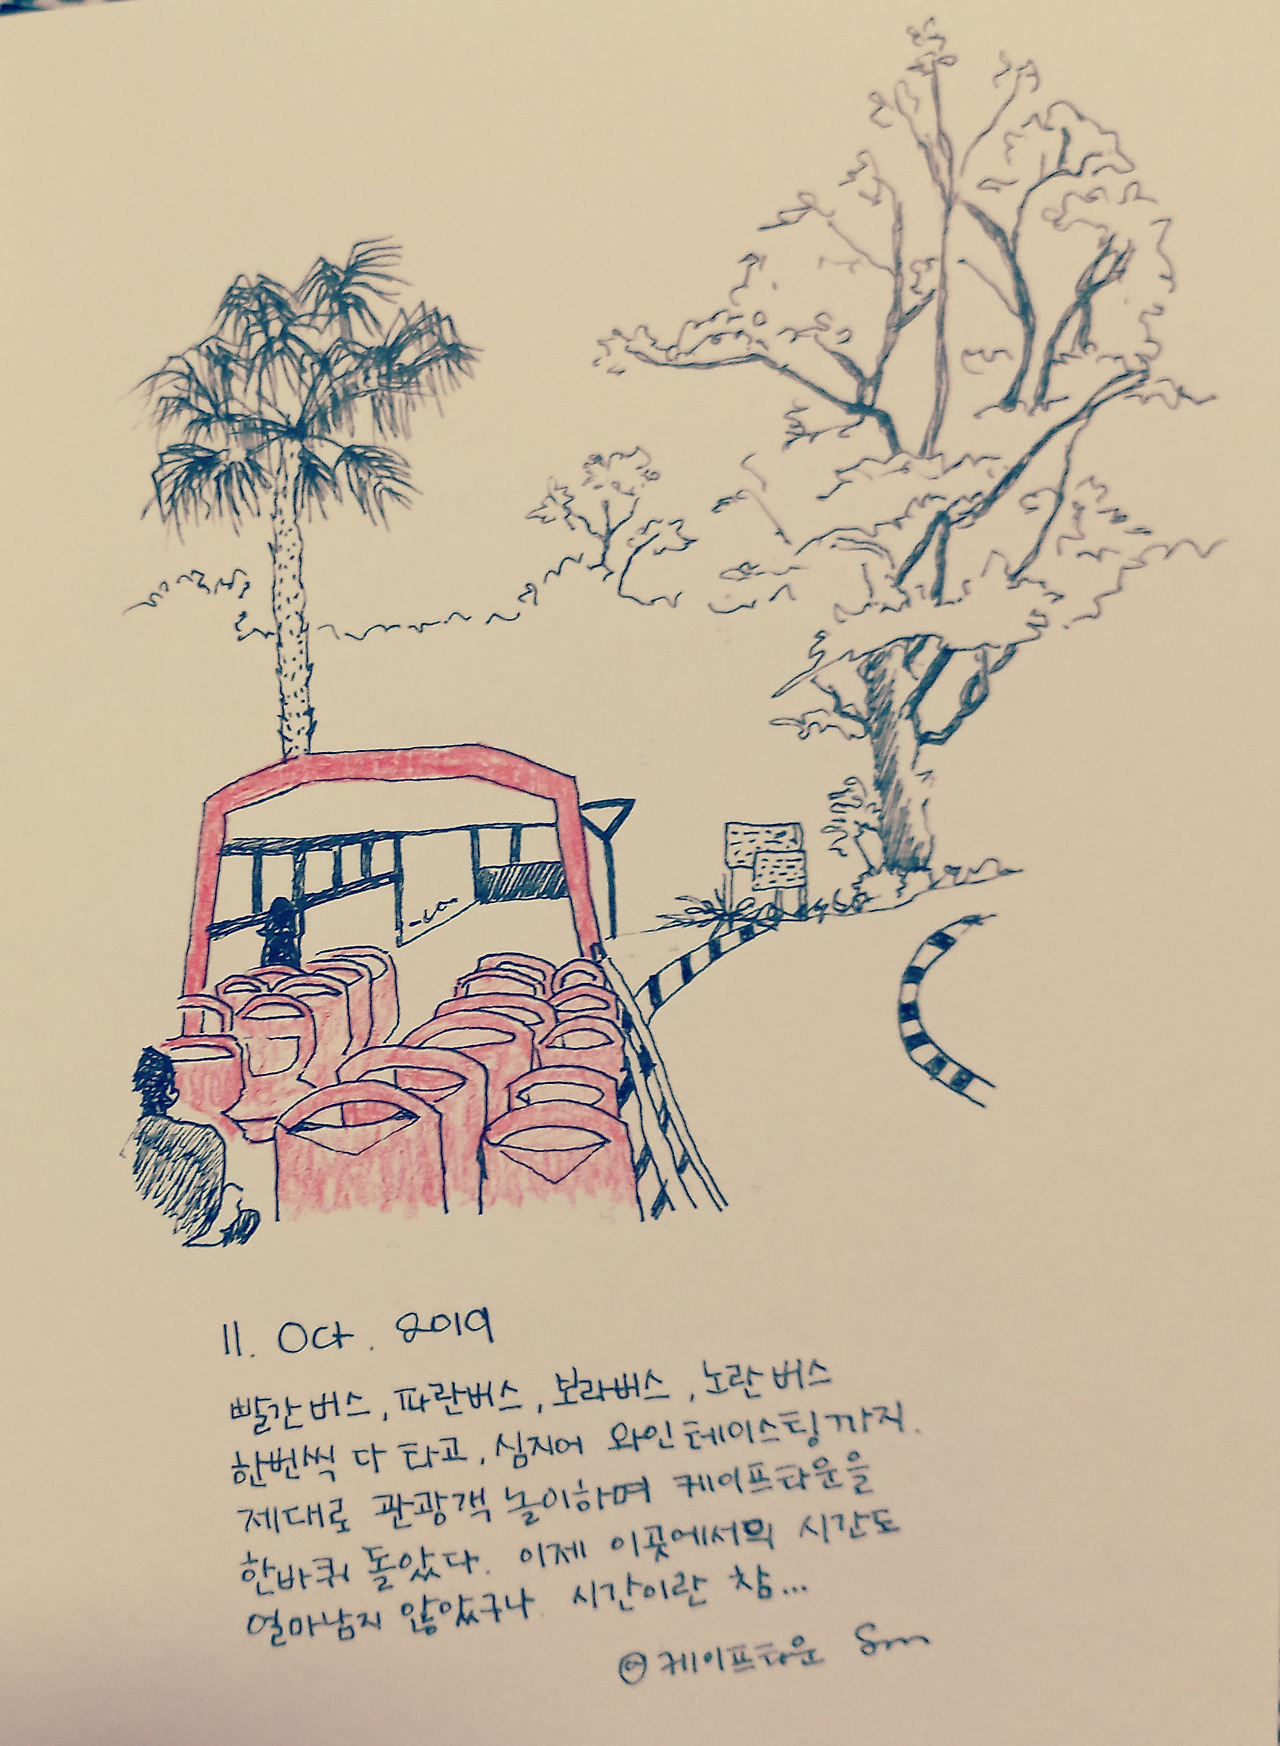 11. Oct. 2019
빨간버스, 파란버스, 보라버스, 노란버스
한번씩 다 타고, 심지어 와인테이스팅까지.
제대로 관광객 놀이하며 케이프타운을
한바퀴 돌았다. 이제 이곳에서의 시간도
얼마남지 않았구나. 시간이란 참...
@케이프타운 Sm